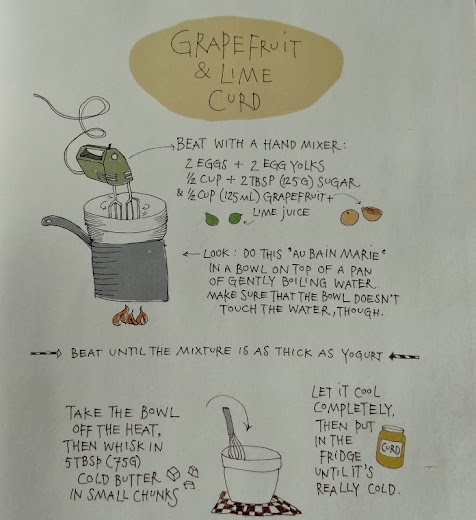 GRAPEFRUIT
& LIME
CURD
BEAT WITH A HAND MIXER:
2 EGGS + 2 EGG YOLKS
½ CUP + 2 TBSP (125 G) SUGAR
& ½ CUP (125 ML) GRAPEFRUIT +
LIME JUICE
LOOK: DO THIS "AU BAIN MARIE"
IN A BOWL ON TOP OF A PAN
OF GENTLY BOILING WATER.
MAKE SURE THAT THE BOWL DOESN'T
TOUCH THE WATER, THOUGH.
BEAT UNTIL THE MIXTURE IS AS THICK AS YOGURT
TAKE THE BOWL
OFF THE HEAT,
THEN WHISK IN
5 TBSP (75G)
COLD BUTTER
IN SMALL CHUNKS
LET IT COOL
COMPLETELY,
THEN PUT
IN THE
FRIDGE
UNTIL IT'S
REALLY COLD.
CURD